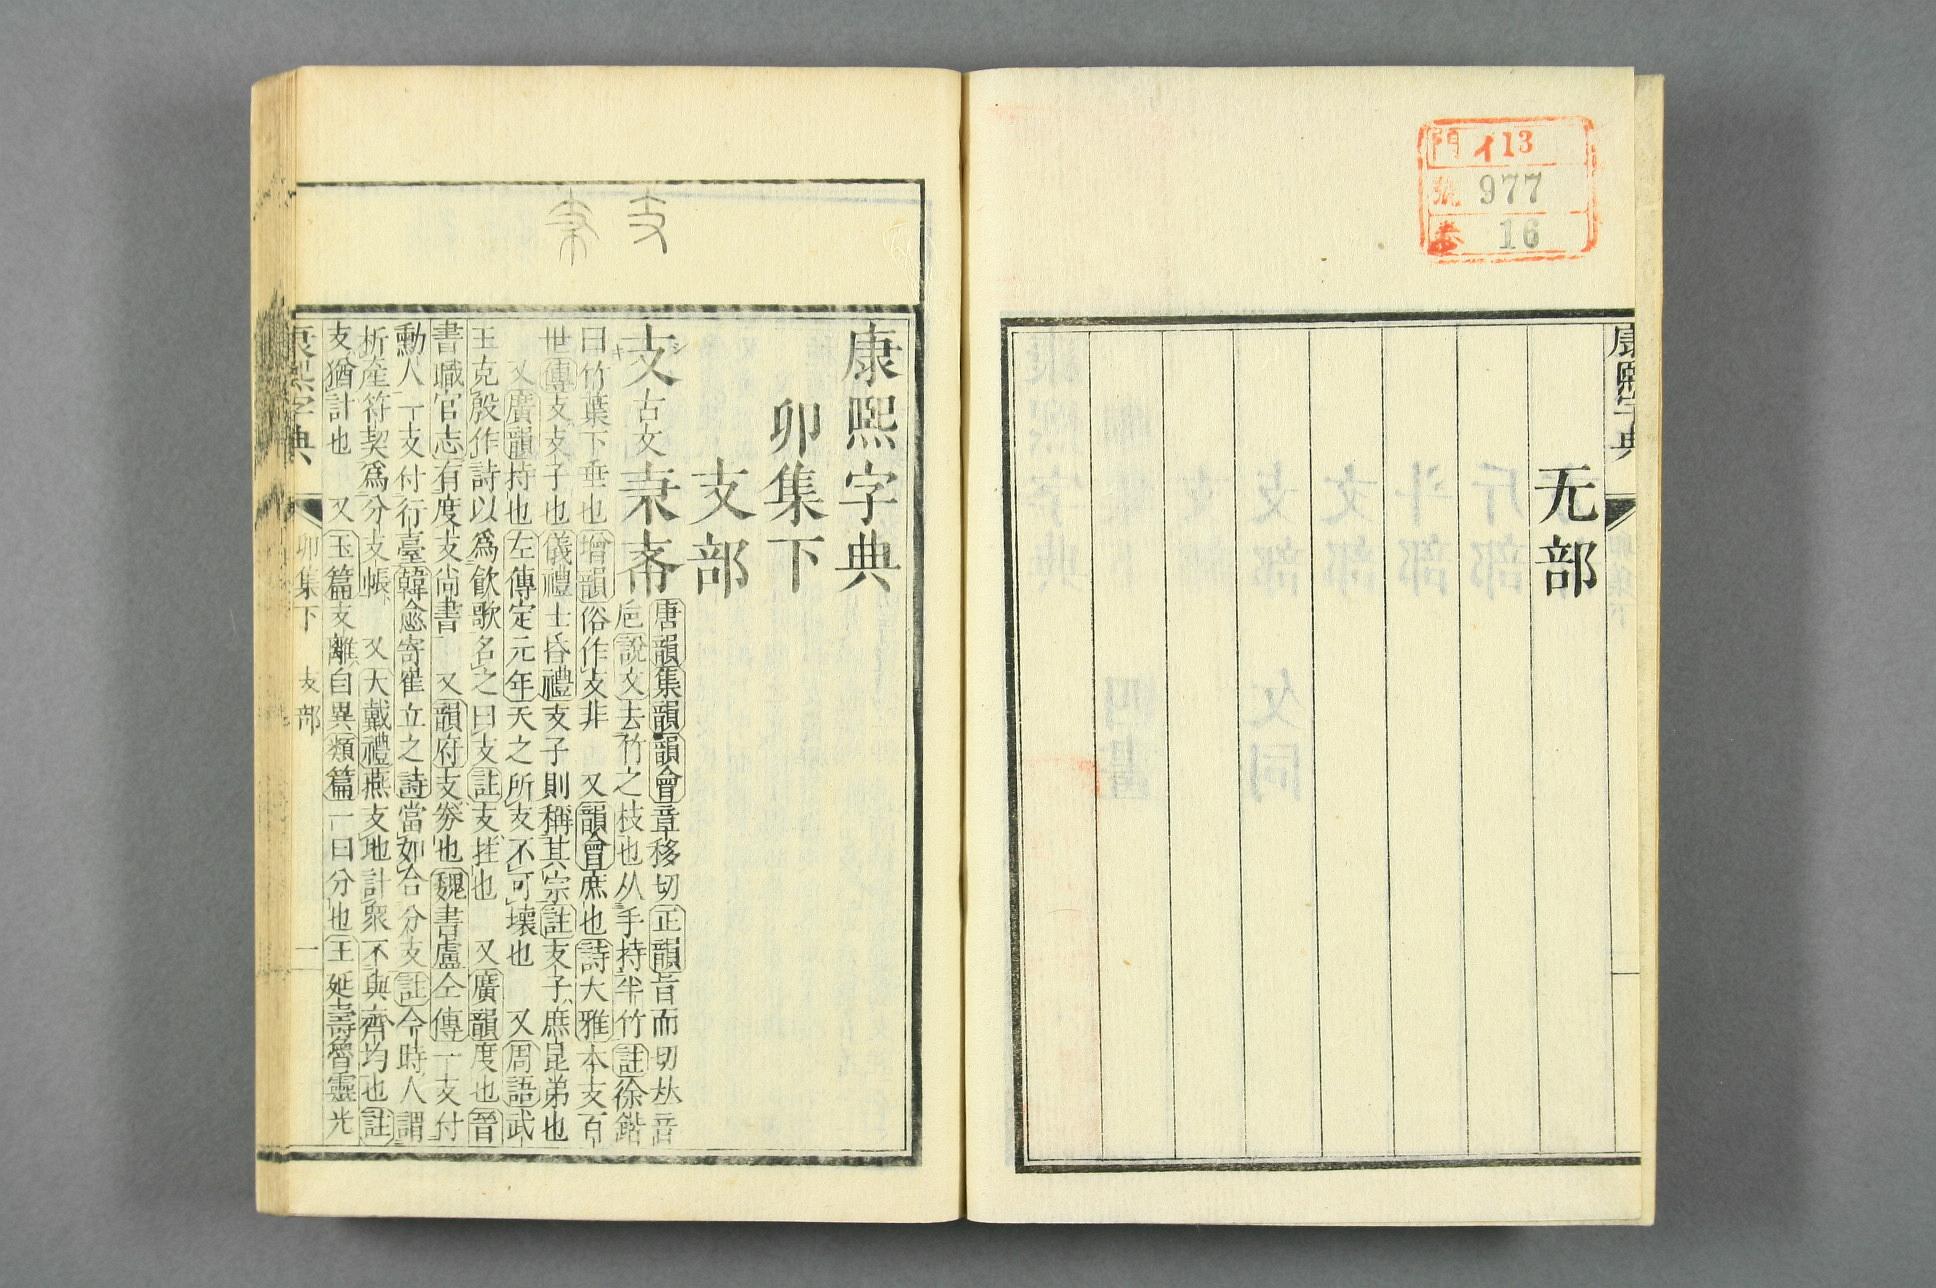 門 イ13
號 977
巻 16
康熙字典
无部
支
康熙字典
卯集下
支部
支古文𠦙𢺶唐韻集韻韻會章移切正韻旨而切𠀤音
巵說文去竹之枝也从手持半竹註徐鍇
曰竹葉下垂也增韻俗作攴非 又韻會庶也詩大雅本支百
世傳支支子也儀禮士昏禮支子則稱其宗註支子庶昆弟也
又廣韻持也左傳定元年天之所支不可壞也 又周語武
王克殷作詩以爲飫歌名之曰支註支拄也 又廣韻度也晉
書職官志有度支尚書 又韻府支劵也魏書盧仝傳一支付
勳人一支付行臺韓愈寄崔立之詩當如合分支註今時人謂
折產符契爲分支帳 又大戴禮燕支地計衆不與齊均也註
支猶計也 又玉篇支離自異類篇一曰分也王延壽魯靈光
康熙字典 卯集下 支部 一